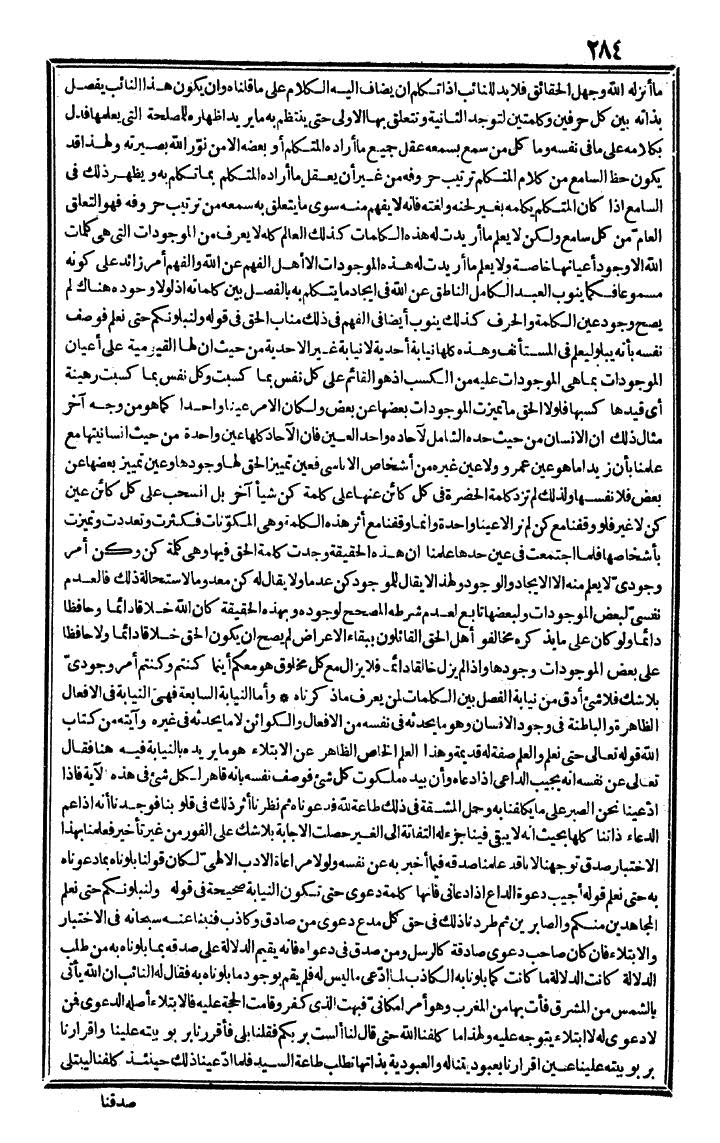 ٢٨٤
ما أنزله الله وجهل الحقائق فلا بد للنائب اذا تكلم ان يضاف اليه الكلام على ما قلناه وان يكون هذا النائب يفصل
بذاته بين كل حرفين وكلمتين لتوجد الثانية وتتعلق بها الاولى حتى ينتظم به ما يريد اظهاره للمصلحة التى يعلمها فدل
بكلامه على ما فى نفسه وما كل من سمع بسمعه عقل جميع ما أراده المتكلم أو بعضه الا من نوّر الله بصيرته ولهذا قد
يكون حظ السامع من كلام المتكلم ترتيب حروفه من غير أن يعقل ما أراده المتكلم بما تكلم به ويظهر ذلك فى
السامع اذا كان المتكلم يكلمه بغير لحنه ولغته فانه لا يفهم منه سوى ما يتعلق به سمعه من ترتيب حروفه فهو التعلق
العام من كل سامع ولكن لا يعلم ما أريدت له هذه الكلمات كذلك العالم كله لا يعرف من الموجودات التى هى كلمات
الله الا وجود أعيانها خاصة ولا يعلم ما أريدت له هذه الموجودات الا أهل الفهم عن الله والفهم أمر زائد على كونه
مسموعا فكما ينوب العبد الكامل الناطق عن الله فى ايجاد ما يتكلم به بالفصل بين كلماته اذ لولا وجوده هناك لم
يصح وجود عين الكلمة والحرف كذلك ينوب أيضا فى الفهم فى ذلك مناب الحق فى قوله ولنبلونكم حتى نعلم فوصف
نفسه بأنه يبلو ليعلم فى المستأنف وهذه كلها نيابة أحدية لا نيابة غير الاحدية من حيث ان لها القيومية على أعيان
الموجودات بما هى الموجودات عليه من الكسب اذ هو القائم على كل نفس بما كسبت وكل نفس بما كسبت رهينة
أى قيدها كسبها فلولا الحق ما تميزت الموجودات بعضها عن بعض ولكان الامر عينا واحدا كما هو من وجه آخر
مثال ذلك ان الانسان من حيث حده الشامل لآحاده واحد العين فان الآحاد كلها عين واحدة من حيث انسانيتها مع
علمنا بأن زيدا ما هو عين عمرو ولا عين غيره من أشخاص الاناسى فعين تمييز الحق لها وجودها وعين تمييز بعضها عن
بعض فلانفسها ولذلك لم تزد كلمة الحضرة فى كل كائن عنها على كلمة كن شيأ آخر بل انسحب على كل كائن عين
كن لا غير فلو وقفنا مع كن لم نر الا عينا واحدة وانما وقفنا مع أثر هذه الكلمة وهى المكوّنات فكثرت وتعددت وتميزت
بأشخاصها فلما اجتمعت فى عين حدها علمنا ان هذه الحقيقة وجدت كلمة الحق فيها وهى كلمة كن وكن أمر
وجودىّ لا يعلم منه الا الايجاد والوجود ولهذا لا يقال للموجود كن عدما ولا يقال له كن معدوما لاستحالة ذلك فالعدم
نفسىّ لبعض الموجودات ولبعضها تابع لعدم شرطه المصحح لوجوده وبهذه الحقيقة كان الله خلاقا دائما وحافظا
دائما ولو كان على ما يذكره مخالفو أهل الحق القائلون ببقاء الاعراض لم يصح ان يكون الحق خلاقا دائما ولا حافظا
على بعض الموجودات وجودها واذا لم يزل خالقا دائما فلا يزال مع كل مخلوق هو معكم أينما كنتم وكنتم أمر وجودىّ
بلا شك فلا شئ أدق من نيابة الفصل بين الكلمات لمن يعرف ما ذكرناه * وأما النيابة السابعة فهى النيابة فى الافعال
الظاهرة والباطنة فى وجود الانسان وهو ما يحدثه فى نفسه من الافعال والكوائن لا ما يحدثه فى غيره وآيته من كتاب
الله قوله تعالى حتى نعلم والعلم صفة له قديمة وهذا العلم الخاص الظاهر عن الابتلاء هو ما يريده بالنيابة فيه هنا فقال
تعالى عن نفسه انه يجيب الداعى اذا دعاه وأن بيده ملكوت كل شئ فوصف نفسه بانه قاهر لكل شئ فى هذه الآية فاذا
ادّعينا نحن الصبر على ما يكلفنا به وحمل المشقة فى ذلك طاعة لله فدعوناه ثم نظرنا أثر ذلك فى قلوبنا فوجدناه أنه اذا عم
الدعاء ذاتنا كلها بحيث انه لا يبقى فينا جزء له التفاتة الى الغير حصلت الاجابة بلا شك على الفور من غير تأخير فعلمنا بهذا
الاختبار صدق توجهنا لا قد علمنا صدقه فيما أخبر به عن نفسه ولولا مراعاة الادب الالهىّ لكان قولنا بلوناه بما دعوناه
به حتى نعلم قوله أجيب دعوة الداع اذا دعانى فانها كلمة دعوى حتى تكون النيابة صحيحة فى قوله ولنبلونكم حتى نعلم
المجاهدين منكم والصابرين ثم طردنا ذلك فى حق كل مدع دعوى من صادق وكاذب فنبنا عنه سبحانه فى الاختبار
والابتلاء فان كان صاحب دعوى صادقة كالرسل ومن صدق فى دعواه فانه يقيم الدلالة على صدقه بما بلوناه به من طلب
الدلالة كانت الدلالة ما كانت كما بلونا به الكاذب لما ادّعى ما ليس له فلم يقم بوجود ما بلوناه به فقال له النائب ان الله يأتى
بالشمس من المشرق فأت بها من المغرب وهو أمر امكانىّ فبهت الذى كفر وقامت الحجة عليه فالابتلاء أصله الدعوى فمن
لا دعوى له لا ابتلاء يتوجه عليه ولهذا ما كلفنا الله حتى قال لنا ألست بربكم فقلنا بلى فأقررنا بربوبيته علينا واقرارنا
بربوبيته علينا عين اقرارنا بعبوديتنا له والعبودية بذاتها تطلب طاعة السيد فلما ادّعينا ذلك حينئذ كلفنا ليبتلى
صدقنا